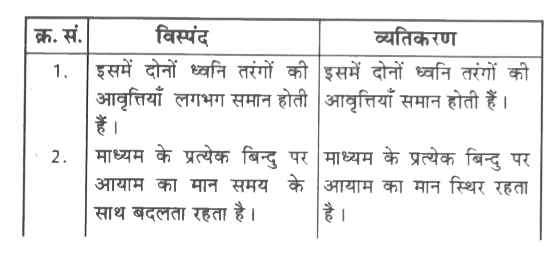 क्र. सं. विस्पंद व्यतिकरण
1. इसमें दोनों ध्वनि तरंगों की इसमें दोनों ध्वनि तरंगों की
आवृत्तियाँ लगभग समान होती आवृत्तियाँ समान होती हैं।
हैं।
2. माध्यम के प्रत्येक बिन्दु पर माध्यम के प्रत्येक बिन्दु पर
आयाम का मान समय के आयाम का मान स्थिर रहता
साथ बदलता रहता है। है।